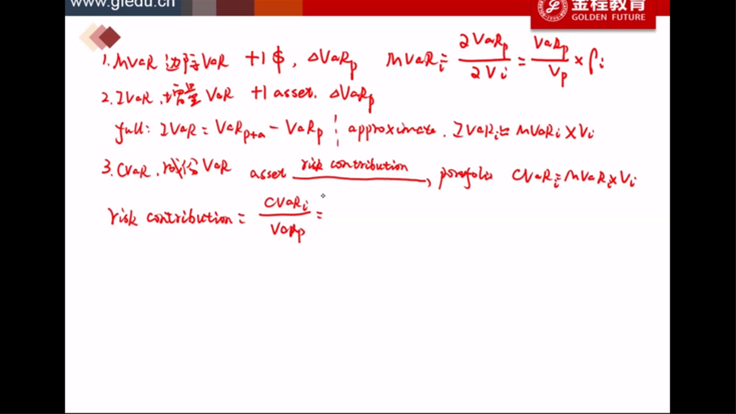 www.gfedu.cn
金程教育
GOLDEN FUTURE
1. MVaR 边际VaR +1$, ΔVaRp MVaRi = ∂VaRp/∂Vi = VaRp/Vp × βi
2. IVaR. 增量VaR +1 asset. ΔVaRp
full: IVaR = VaRp+a − VaRp ¦ approximate. IVaRi = MVaRi × Vi
3. CVaR. 成份VaR asset risk contribution → portfolio CVaRi = MVaRi × Vi
risk contribution = CVaRi/VaRp =